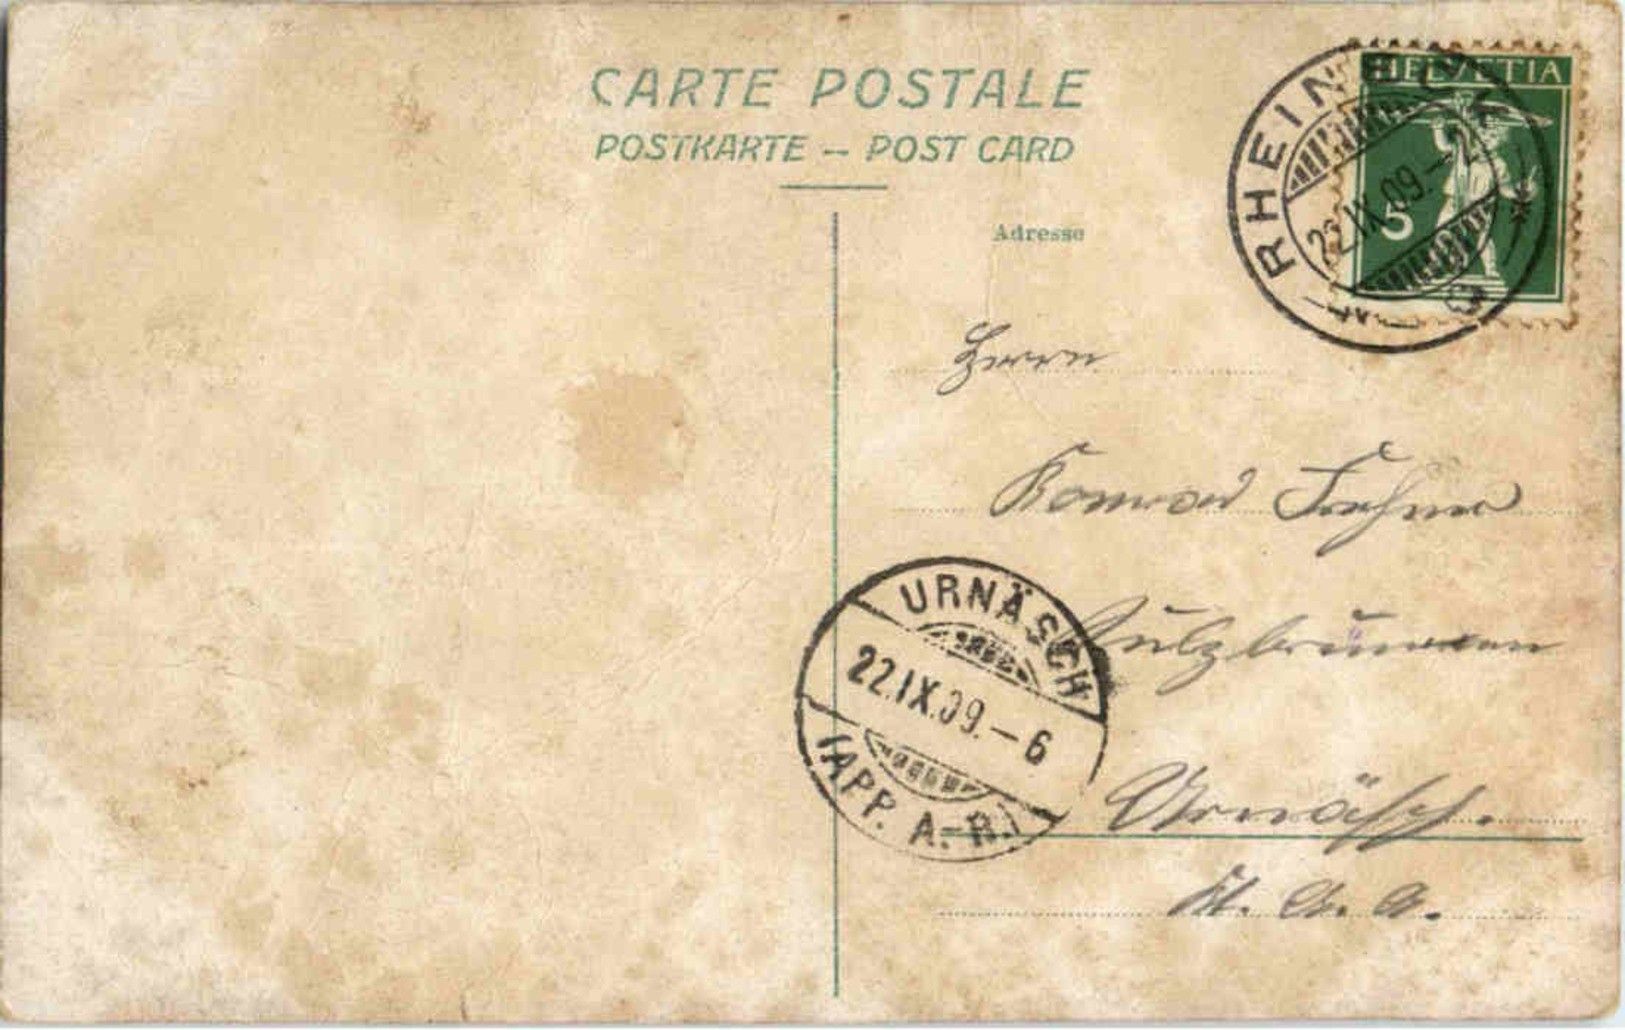 CARTE POSTALE
POSTKARTE – POST CARD
HELVETIA
5
RHEINECK
22.IX.09.–2
Adresse
Herrn
Konrad
Sulzbrunnen
URNÄSCH
22.IX.09.–6
(APP. A.-R.)
Urnäsch.
Kt.